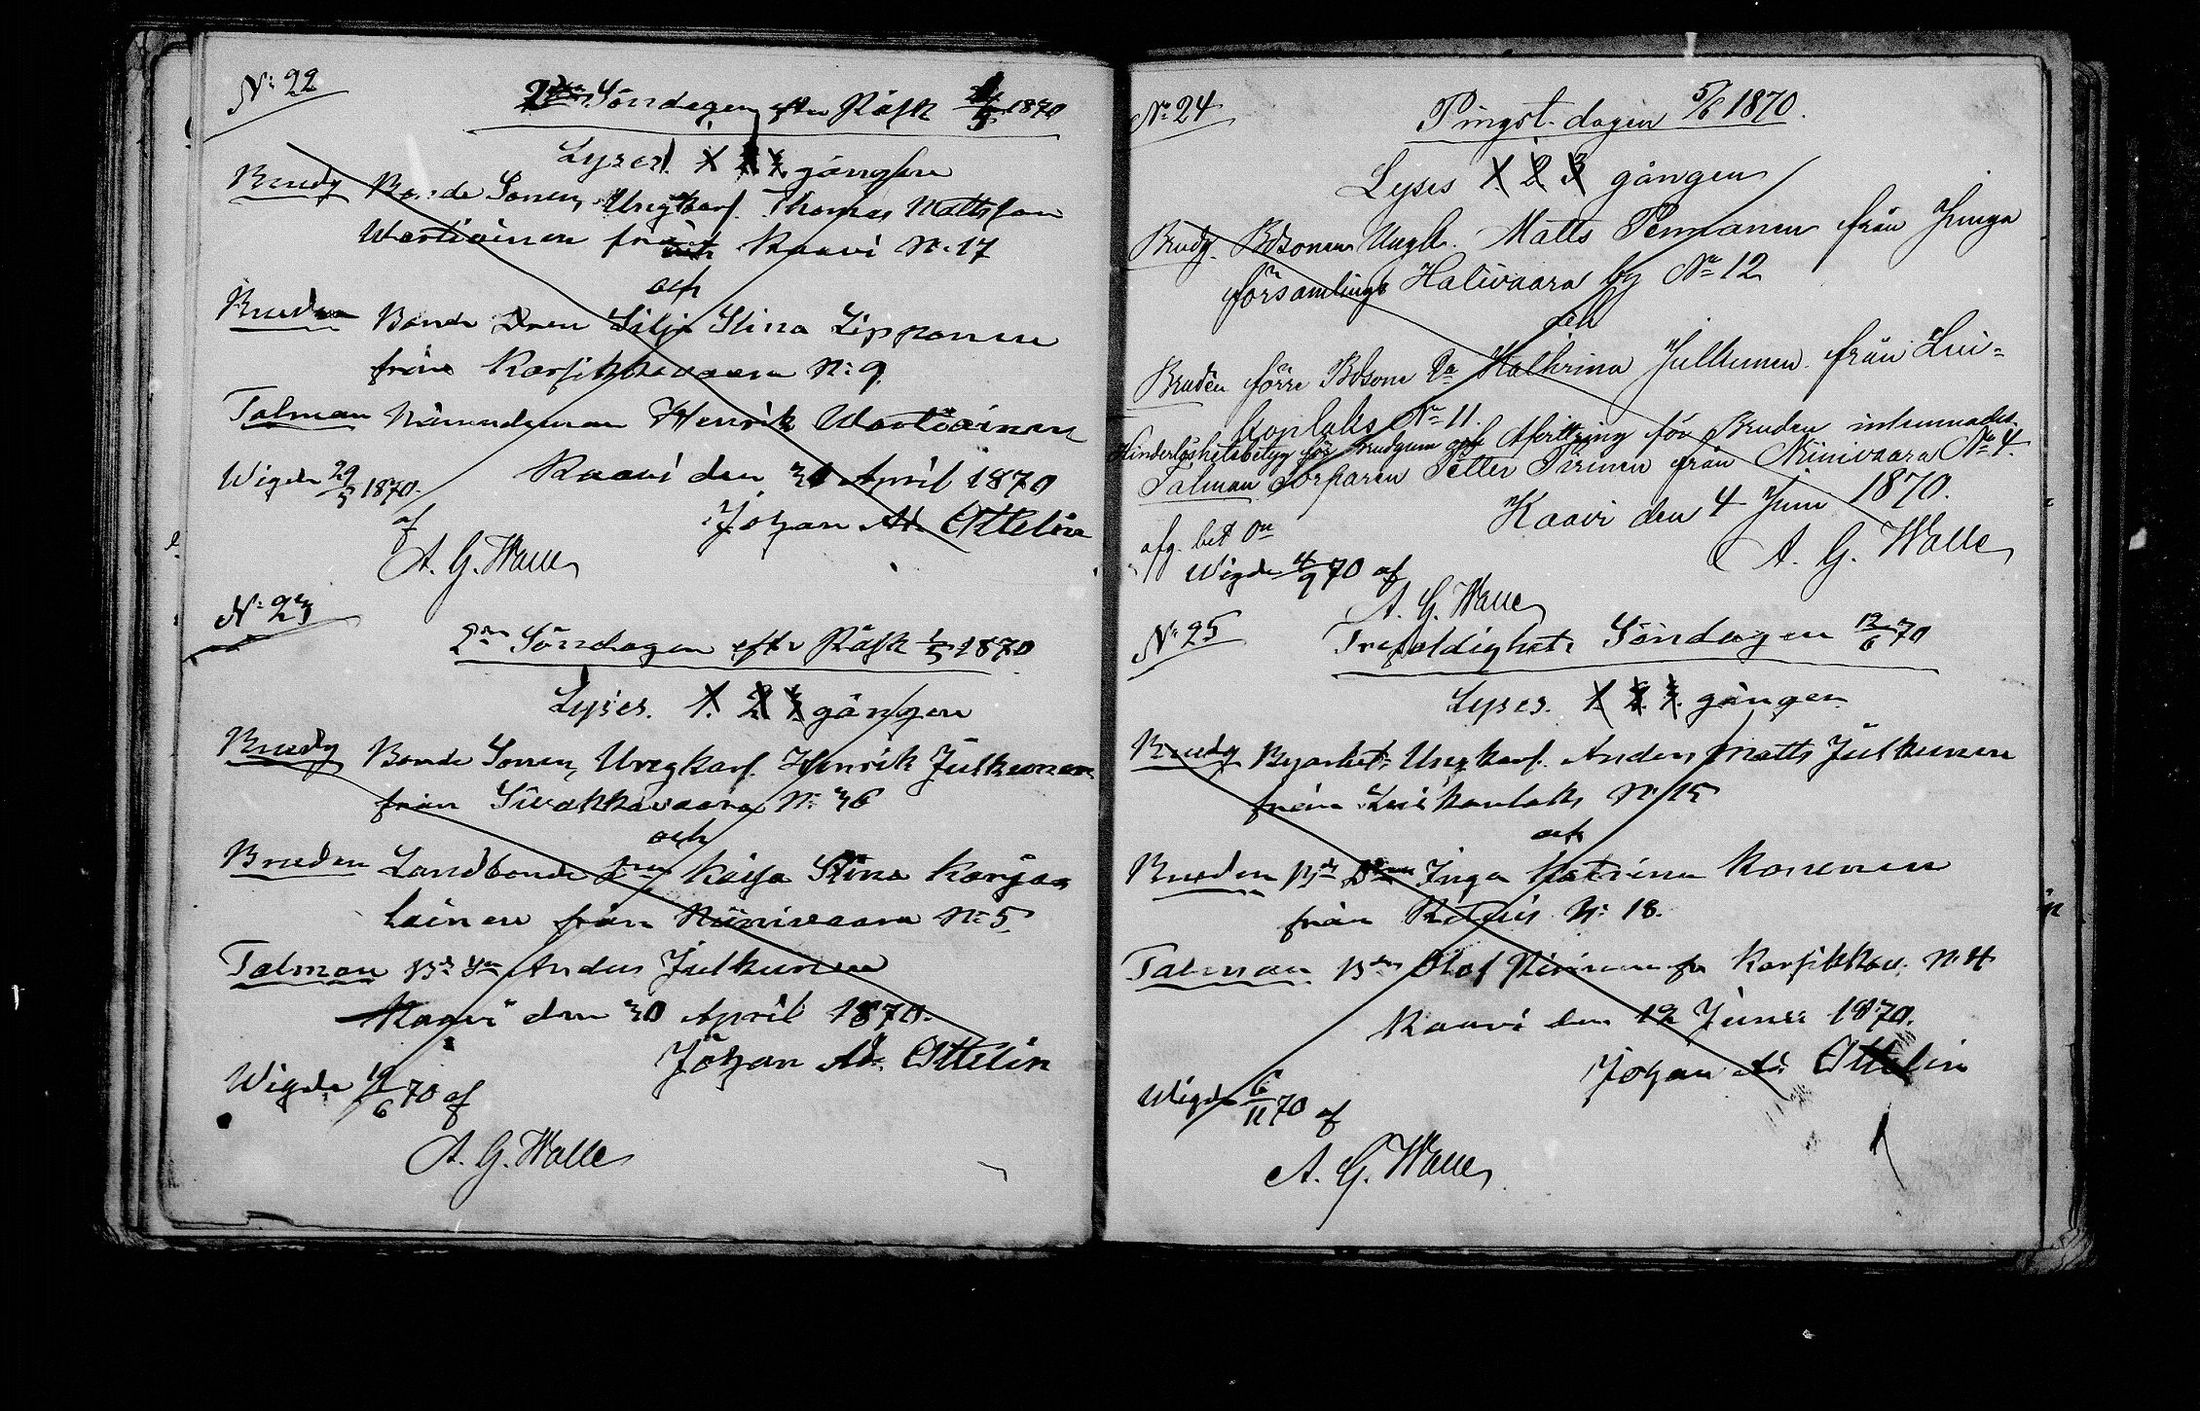 N: 22
2dra Söndagen efter Påsk 1/5 1870
Lyses 1. 2. 3. gången
Brudg Bonde Sonen, Ungkarl. Thomas Mattsson
Wartiainen från Kaavi N: 17
och
Bruden Bonde Dren Silja Stina Lipponen
från Karsikkovaara N: 9.
Talman Nämndeman Henrik Wartiainen
Wigde 29/5 1870.
af
A. G. Walle
Kaavi den 30 April 1870
Johan Ad. Ottelin
N: 23
2dra Söndagen efter Påsk 1/5 1870
Lyses. 1. 2. 3. gången
Brudg Bonde Sonen, Ungkarl. Henrik Julkunen
från Sivakkavaara N: 36
och
Bruden Landbonde Dren Kaisa Stina Karja
lainen från Niinivaara N: 5
Talman Bd Sn Anders Julkunen
Kaavi den 30 April 1870.
Johan Ad. Ottelin
Wigde 19/6 70 af
A. G. Walle
No 24
Pingst dagen 5/6 1870.
Lyses 1. 2. 3. gången
Brudg. Bdsonen Ungk. Matts Pennanen från Junga
församlings Halivaara by No 12
och
Bruden förre Bdsone Da Kathrina Julkunen från Lui=
konlaks No 11.
Hinderlöshetsbetyg för brudgum och Afvittring för Bruden inlemnadt.
Talman Torparen Petter Pirinen från Niinivaara No 4.
Kaavi den 4 Juni 1870.
A. G. Walle
afg. bet
Wigde 4/9 70 af
A. G. Walle
No 25
Trefaldighets Söndagen 12/6 70
Lyses. 1. 2. 3. gången
Brudg Byarbet. Ungkarl. Anders Matts Julkunen
från Luikonlaks N: 15
och
Bruden Bd Dren Inga Katrina Kononen
från N: 18.
Talman Bden Olof Pirinen fr Karsikkov. N: 4
Kaavi den 12 Junii 1870.
Johan Ad. Ottelin
Wigde 6/11 70 af
A. G. Walle